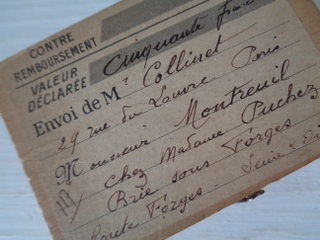 CONTRE
REMBOURSEMENT
VALEUR
DÉCLARÉE
Cinquante francs
Envoi de Mr Collinet
29 rue du Louvre Paris
Monsieur Montreuil
chez Madame Puchez
Brie sous Forges
Forges